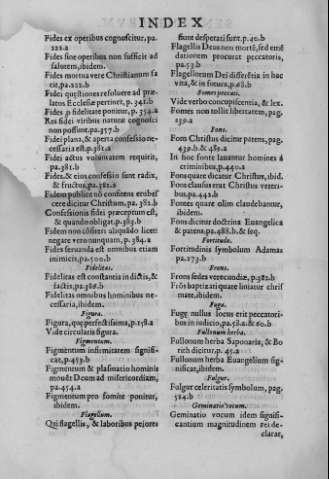 INDEX
Fides ex operibus cognoscitur, pa.
222.a
Fides sine operibus non sufficit ad
salutem, ibidem.
Fides mortua vere Christianum fa
cit, pa.222.b
Fidei quęstiones resoluere ad pręlatos
Ecclesiæ pertinet, p. 341.b
Res fidei viribus naturæ cognosci
non possunt, pa.357.b
Fidei plana, & aperta confessio necessaria
est, p.381.a
Fidei actus voluntatem requirit,
pa.381.b
Fides, & eius confessio sunt radix,
& fructus, pa.381.b
Fidem publicè nõ consitens erubescere
dicitur Christum, pa. 382.b
Confessionis fidei præceptum est,
& quando obliget, p.383.b
Fidem non cõfiteri aliquãdo licet:
negare vero nunquam, p. 384.a
Fides seruanda est omnibus etiam
inimicis, pa.500.b
Fidelitas.
Fidelitas est constantia in dictis, &
factis, pa.386.b
Fidelitas omnibus hominibus necessaria,
ibidem.
Figura.
Figura, quę perfectissima, p.158.a
Vide circularis figura.
Figmentum.
Figmentum infirmitatem significat,
p.453.b
Figmentum & plasmatio hominis
mouẽt Deum ad misericordiam,
pa.454.a
Figmentum pro fomite ponitur,
ibidem.
Flagellum.
Qui flagellis, & laboribus peiores
fiunt desperati sunt. p.40.b
Flagellis Deus non mortẽ, sed emẽdationem
procurat peccatoris,
pa.53.b
Flagellorum Dei differẽtia in hac
vita, & in futura, p.68.b
Fomes peccati.
Vide verbo concupiscentia, & lex.
Fomes non tollit libertatem, pag.
Fons.
Fons Christus dicitur patens, pag.
439.b. & 481.a
In hoc fonte lauantur homines á
criminibus, p.440.a
Fons quare dicatur Christus, ibid.
Fons clausus erat Christus veteribus,
pa.441.b
Fontes quare olim claudebantur,
ibidem.
Fons dicitur doctrina Euangelica
& patens, pa.488.b. & seq.
Fortitudo.
Fortitudinis symbolum Adamas
pa.273.b
Frons.
Frons sedes verecundiæ, p.382.b
Frõs baptizati quare liniatur chrismate,
ibidem.
Fuga.
Fugę nullus locus erit peccatoribus
in iudicio, pa.58.a. & 60.b
Fullonum herba.
Fullonum herba Saponaria, & Borith
dicitur, p. 45.a
Fullonum herba Euangelium significat,
ibidem.
Fulgur.
Fulgur celeritatis symbolum, pag.
524.b
Geminatio vocum.
Geminatio vocum idem significantium
magnitudinem rei declarat,